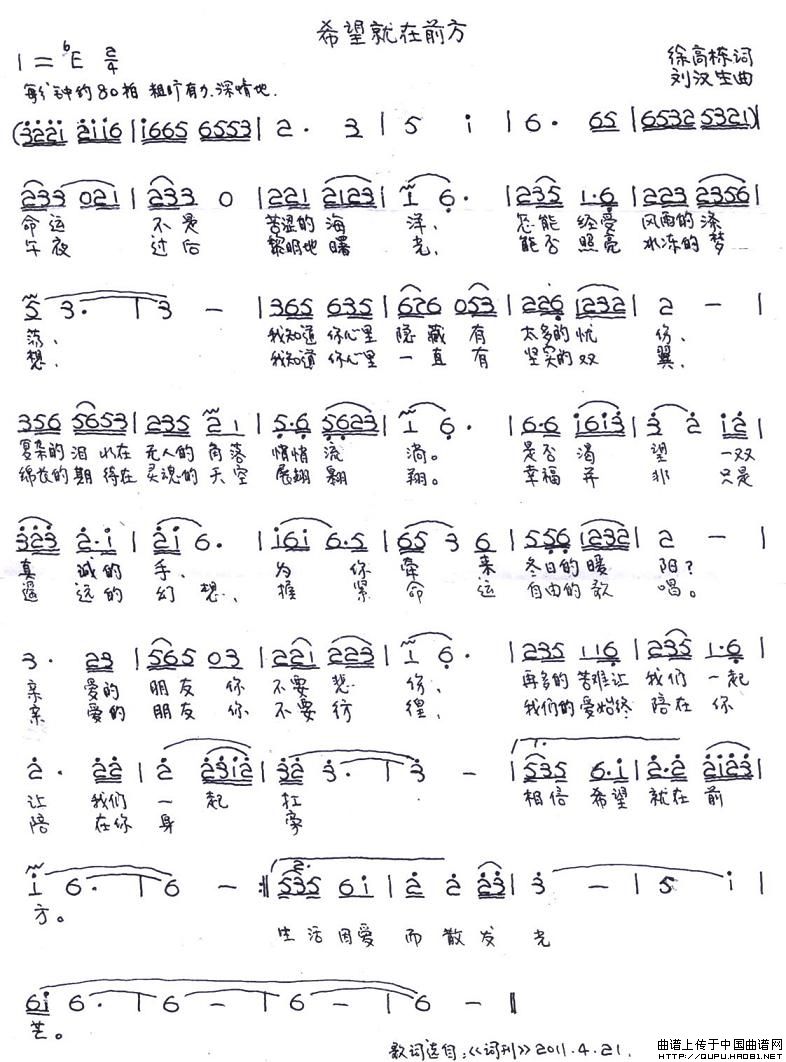 希望就在前方
1=♭E 2/4
徐高栋词
每分钟约80拍 粗旷有力.深情地.
刘汉生曲
(3221 2116|1665 6553|2· 3|5 i|6· 65|6532 5321)|
233 021|233 0|221 2123|1 6·|235 1·6|223 2356|
命运 不是 苦涩的海 洋, 怎能 经受 风雨的涤
午夜 过后 黎明地曙 光, 能否 照亮 冰冻的梦
5 3·|3 —|365 635|676 053|226 1232|2 —|
荡, 我知道 你心里 隐藏 有 太多的忧 伤,
想, 我知道 你心里 一直 有 坚实的双 翼,
356 5653|235 21|5·6 5623|1 6·|6·6 1613|3 2 12|
复杂的泪水在 无人的 角落 悄悄 流 淌。 是否 渴 望 一双
绵长的期待在 灵魂的 天空 展翅 翱 翔。 幸福 并 非 只是
323 2·1|21 6·|161 6·5|65 3 6|556 1232|2 —|
真 诚的 手, 为 你 牵 来 冬日的暖 阳?
遥 远的 幻想, 推 紧 命 运 自由的歌 唱。
3· 23|565 03|221 223|1 6·|235 116|235 1·6|
亲 爱的 朋友 你 不要 悲 伤, 再多的苦难让 我们 一起
亲 爱的 朋友 你 不要 彷 徨, 我们的爱始终 陪在 你
2· 22|2 2312|32 3·|3 —|535 6·1|2·2 2123|
让 我们 一 起 扛 相信 希望 就在 前
陪 在你 身 旁
1 6·|6 —:‖ 2. 535 61|2 2 23|3 —|5 i|
方。
生活 因爱 而 散 发 光
61 6·|6 —|6 —|6 —‖
芒。
歌词选自:《词刊》2011.4.21.
曲谱上传于中国曲谱网
HTTP://QUPU.HAO81.NET